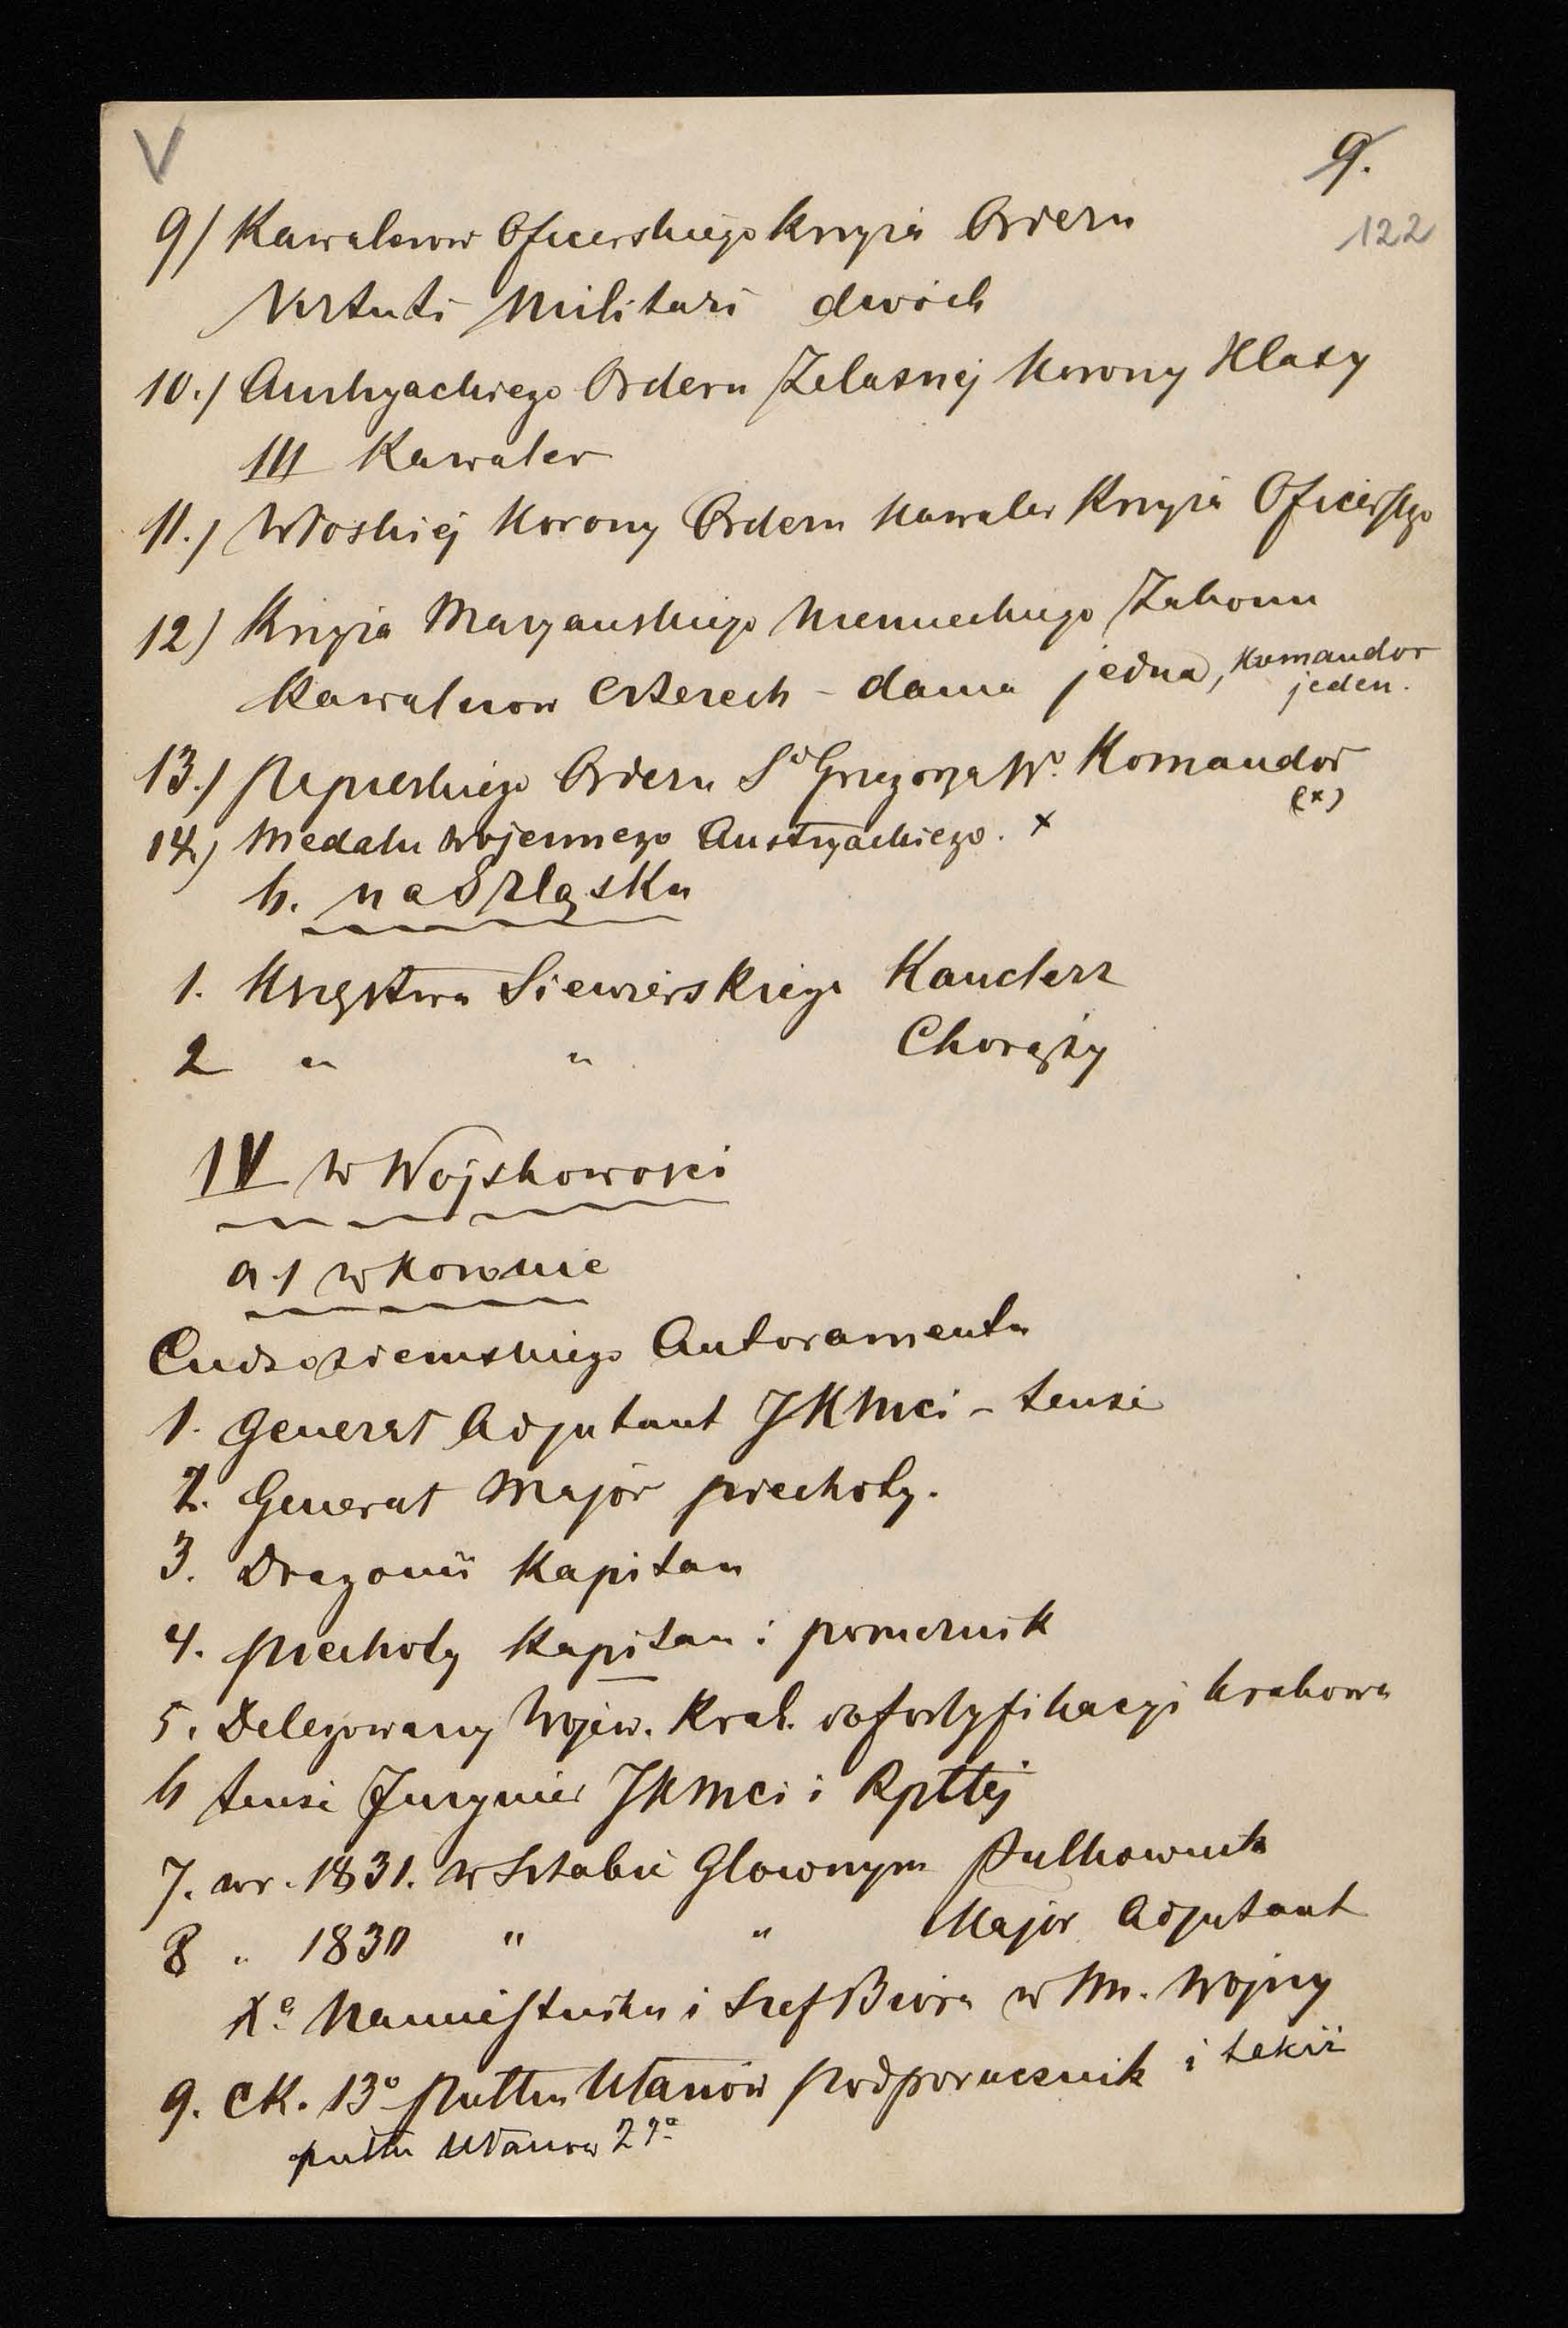 V
9.
122
9/ Kawalerow Oficerskiego Krzyża Orderu
Virtuti Militari dwóch
10./ Austryackiego Orderu Żelaznej Korony Klasy
III Kawaler
11./ Włoskiej Korony Orderu Kawaler Krzyża Oficerskgo
12) Krzyża Maryańskiego Niemieckiego Zakonu
Kawalerow czterech - dama jedna, Komandor
jeden.
13./ Papieskiego Orderu Sgo Grzegorza W. Komandor
(x)
14) Medalu wojennego Austryackiego. x
h. na Szląsku
1. Księstwa Siewierskiego Kanclerz
2 " " Chorąży
IV w Wojskowości
a./ w Koronie
Cudzoziemskiego Autoramentu
1. Generał Adjutant JKMci - tenże
2. Generał Major piechoty.
3. Dragonii Kapitan
4. Piechoty Kapitan i porucznik
5. Delegowany Wojew. Krak. do fortyfikacyi Krakowa
6 tenże Inżynier JKMci i Rpttej
7. w r. 1831. w Sztabie Głownym Pułkownik
8 " 1830 " " Major Adjutant
Xa Namiestnika i Szef Biura w M. Wojny
9. CK. 13o Pułku Ułanów podporucznik i tekiż
pułku Ułanow 2go